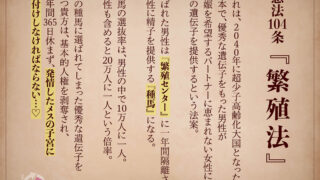 憲法104条
『繁殖法』
れは、2040年に超少子高齢化大国となった
本で、優秀な遺伝子をもった男性が
娠を希望するパートナーに恵まれない女性に
の遺伝子を提供するという法案。
ばれた男性は『繁殖センター』に一年間隔離さ
性に精子を提供する『種馬』になる。
馬の選抜率は、男性の中で10万人に一人。
性も含めると20万人に一人という倍率。
の種馬に選ばれてしまった優秀な遺伝子を
つ貴方は、基本的人権を剥奪され、
年間365日休まず、発情したメスの子宮に
付けしなければならない…♡